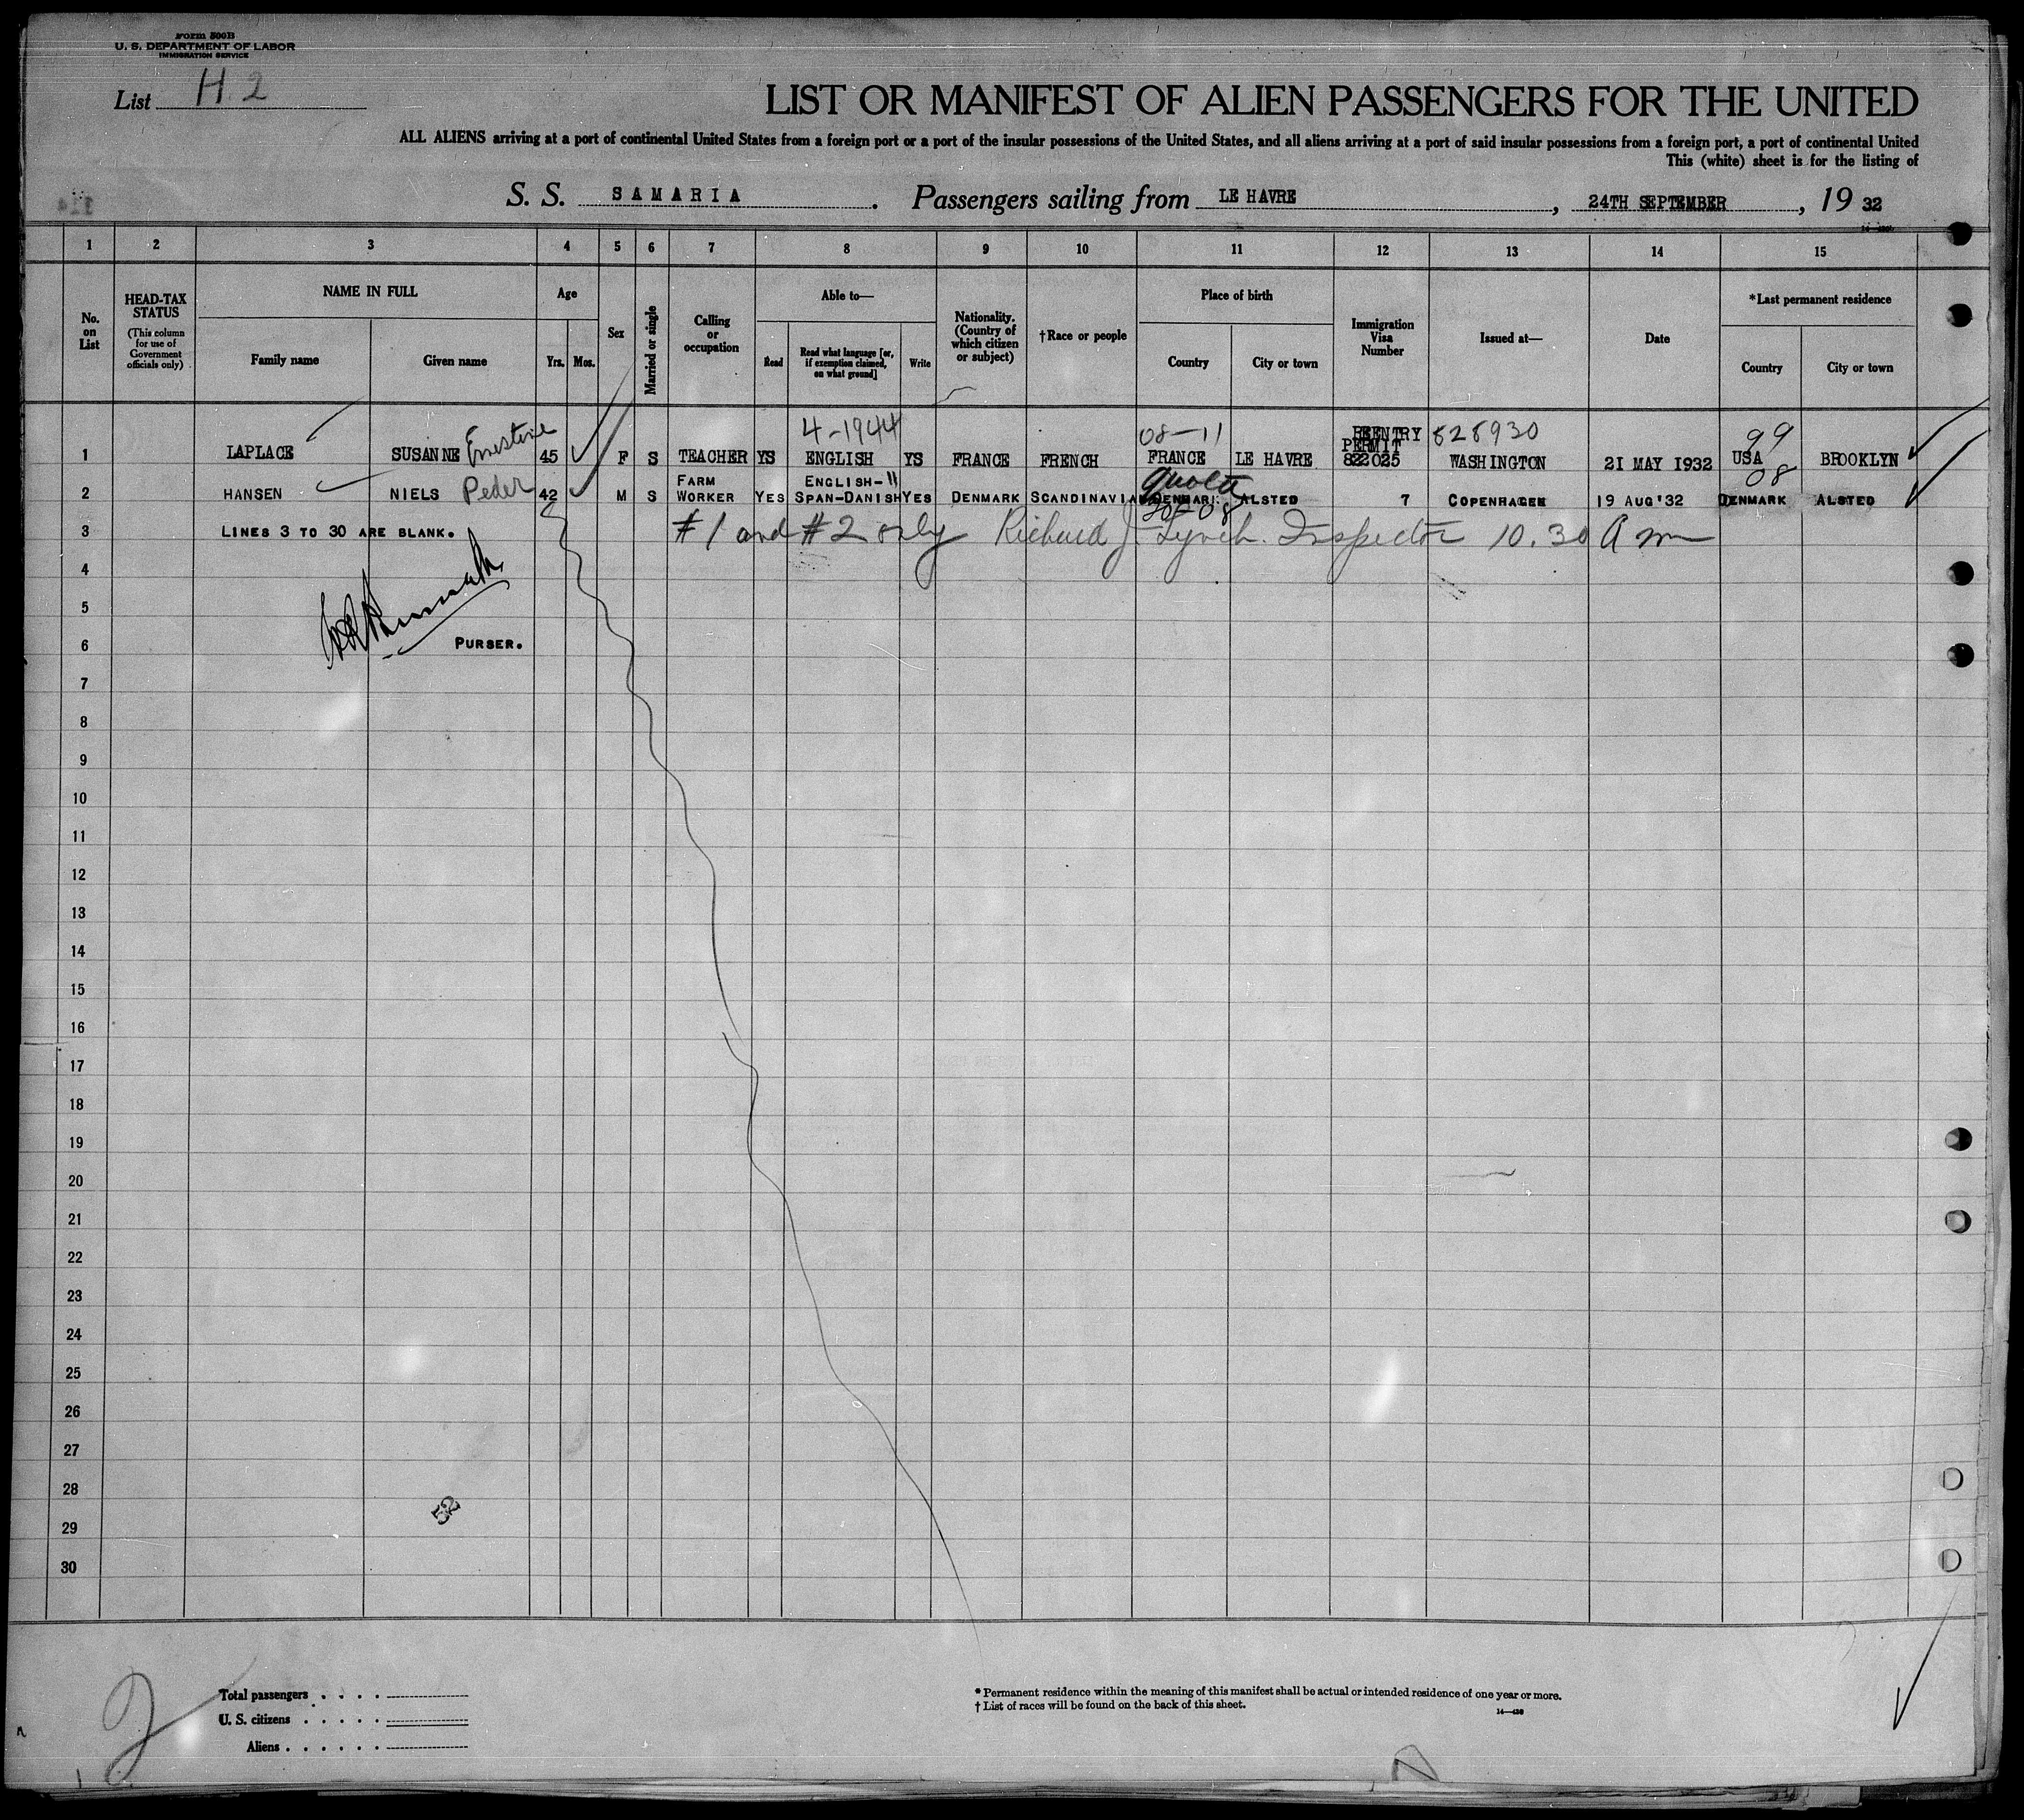 Form 500B
U. S. DEPARTMENT OF LABOR
IMMIGRATION SERVICE
List H. 2
LIST OR MANIFEST OF ALIEN PASSENGERS FOR THE UNITED
ALL ALIENS arriving at a port of continental United States from a foreign port or a port of the insular possessions of the United States, and all aliens arriving at a port of said insular possessions from a foreign port, a port of continental United
This (white) sheet is for the listing of
S. S. SAMARIA. Passengers sailing from LE HAVRE, 24TH SEPTEMBER, 19 32
1 2 3 4 5 6 7 8 9 10 11 12 13 14 15
No. on List
HEAD-TAX STATUS
(This column for use of Government officials only)
NAME IN FULL
Family name
Given name
Age
Yrs. Mos.
Sex
Married or single
Calling or occupation
Able to—
Read
Read what language [or, if exemption claimed, on what ground]
Write
Nationality. (Country of which citizen or subject)
†Race or people
Place of birth
Country
City or town
Immigration Visa Number
Issued at—
Date
*Last permanent residence
Country
City or town
4-1944 08-11 REENTRY PERMIT 628930 99
1 LAPLACE SUSANNE Ernestine 45 F S TEACHER YS ENGLISH YS FRANCE FRENCH FRANCE LE HAVRE 822025 WASHINGTON 21 MAY 1932 USA BROOKLYN
FARM ENGLISH-11 Quota 08
2 HANSEN NIELS Peder 42 M S WORKER YES SPAN-DANISH YES DENMARK SCANDINAVIAN DENMARK ALSTED 7 COPENHAGEN 19 AUG '32 DENMARK ALSTED
3 LINES 3 TO 30 ARE BLANK. #1 and #2 only Richard J. Lynch. Inspector 10.30 A m
4
5
6 PURSER.
7
8
9
10
11
12
13
14
15
16
17
18
19
20
21
22
23
24
25
26
27
28
52
29
30
2
Total passengers . . . .
U. S. citizens . . . . .
Aliens . . . . . .
* Permanent residence within the meaning of this manifest shall be actual or intended residence of one year or more.
† List of races will be found on the back of this sheet.